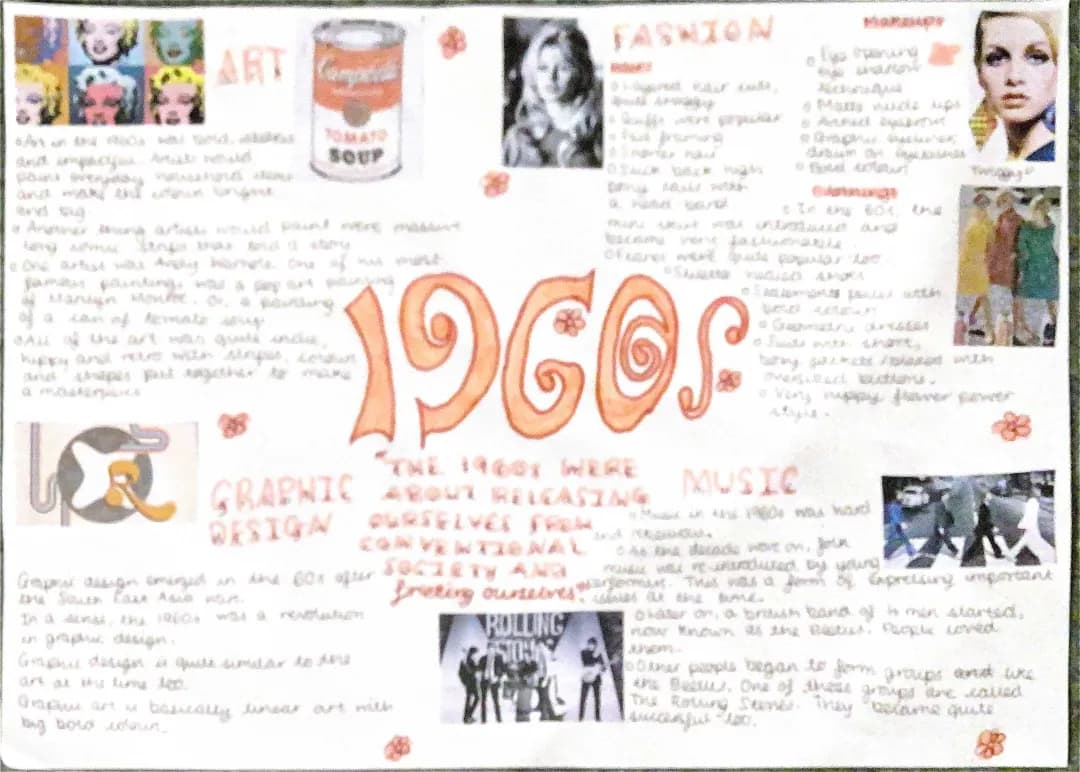 ART
Campbell's
TOMATO
SOUP
o Art in the 1960s was bold,
and impactful. Artists would
paint everyday household items
and make the colour brighter
and big.
o Another thing artists would paint were massive
long comic strips that told a story
o One artist was Andy Warhole. One of his most
famous painting, was a pop art painting
of Marilyn Monroe. Or, a painting
of a can of tomato soup.
o All of the art was quite indie,
hippy and retro with stripes, colours
and shapes put together to make
a masterpiece
FASHION
o Layered hair cuts,
quite shaggy
o Quiffs were popular
o Face framing
o Shorter hair
o Slick back high
pony tails with
a head band
Makeups
o Eye opening
eye shadow
technique
o Matte nude lips
o Arched eyebrow
o Graphic eyeliner,
drawn on eyelashes
o Bold colour
Twiggy
o In the 60s, the
mini skirt was introduced and
became more fashionable.
o Flares were quite popular too.
o heeled shoes
o Statements pieces with
bold colours
o Geometric dresses
o Suits with short,
boxy jackets with
oversized buttons.
o Very hippy flower power
style.
1960s
"THE 1960s WERE
ABOUT RELEASING
OURSELVES FROM
CONVENTIONAL
SOCIETY AND
freeing ourselves"
GRAPHIC
DESIGN
Graphic design emerged in the 60s after
the South East Asia war.
In a sense, the 1960s was a revolution
in graphic design.
Graphic design is quite similar to the
art at the time too.
Graphic art is basically linear art with
big bold colour.
ROLLING
STONES
MUSIC
o Music in the 1960s was hard
and
o As the decade went on, folk
music was re-introduced by young
This was a form of expressing important
issues at the time.
o Later on, a british band of 4 men started,
now known as the Beatles. People loved
them.
o Other people began to form groups and like
the Beatles. One of these groups are called
The Rolling Stones. They became quite
successful too.